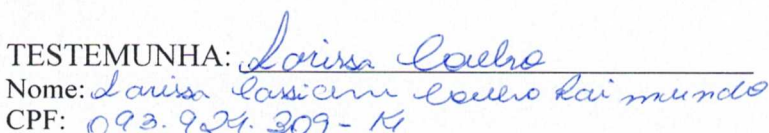 TESTEMUNHA: Larissa Coelho
Nome: Larissa Cassiane Coelho Raimundo
CPF: 093.924.309-